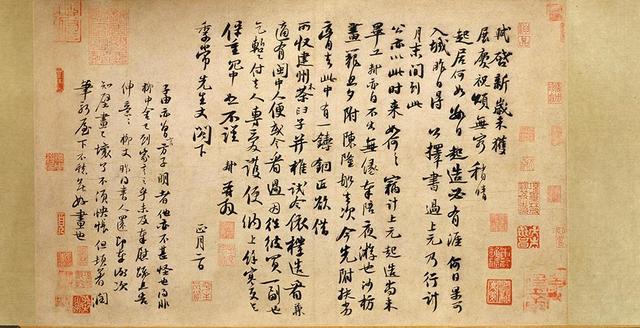 軾啓新歲未獲
展慶祝頌無窮稍晴
起居何如數日起造必有涯何日果可
入城昨日得公擇書過上元乃行計
月末間到此
公亦以此時來如何々竊計上元起造尚未
畢工軾亦自不出無緣奉陪夜遊也沙枋
畫籠旦夕附陳隆船去次今先附扶劣
膏去此中有一鑄銅匠欲借
所收建州木茶臼子并椎試令依樣造看兼
適有閩中人便或令看過因往彼買一副也
乞暫付去人專愛護便納上餘寒更乞
保重冗中恕不謹軾再拜
季常先生丈閣下
正月二日
子由亦曾言方子明者他亦不甚怪也得非
柳中舍已到家言之乎未及奉慰疏且告
伸意々柳丈昨得書人還即奉謝次
知壁畫已壞了不須怏悵但頓著潤
筆新屋下不愁無好畫也